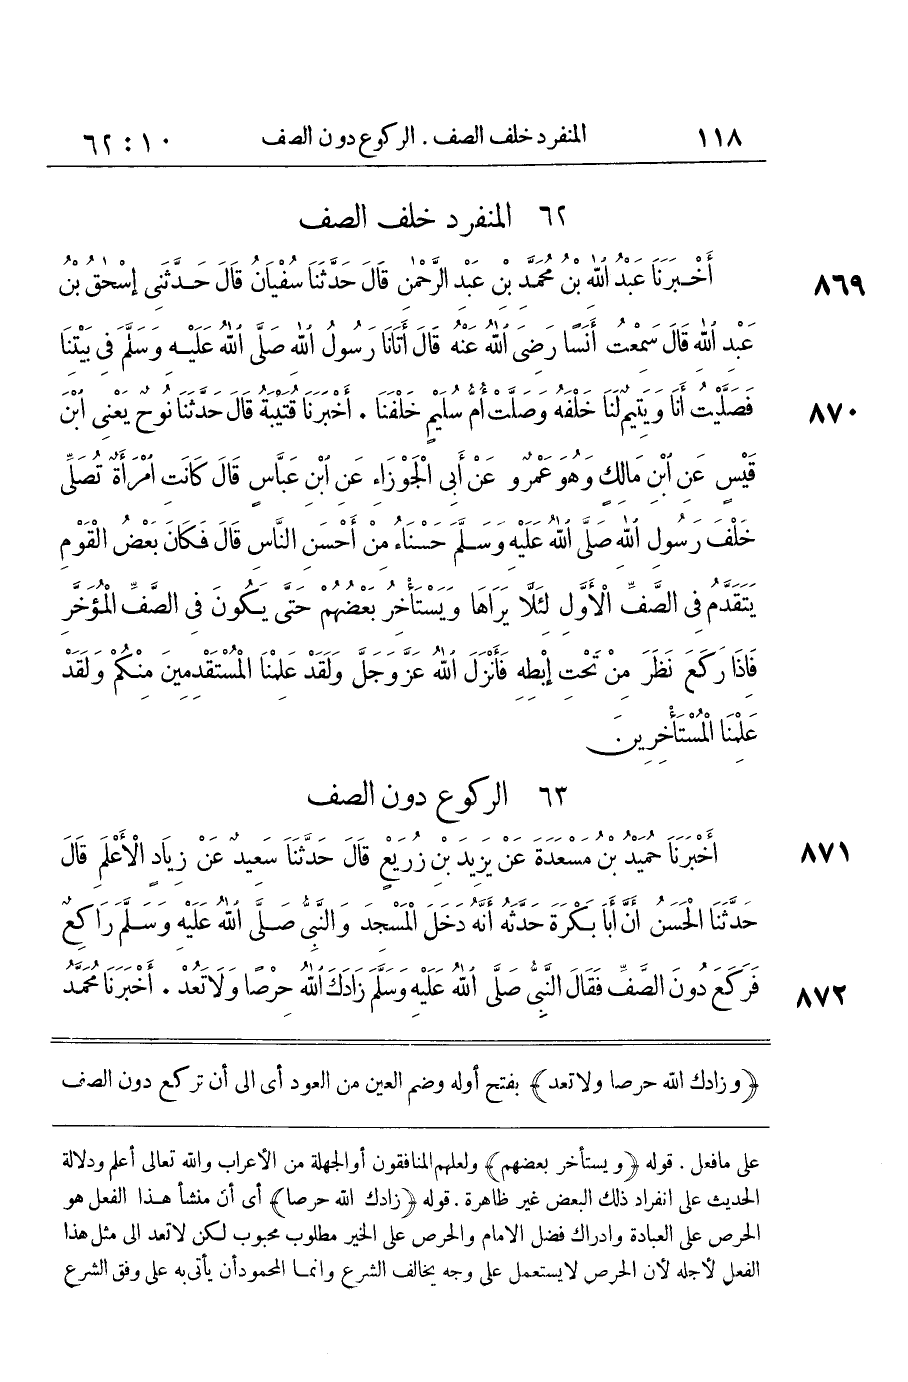 ١١٨ المنفرد خلف الصف . الركوع دون الصف ١٠ : ٦٢
٦٢ المنفرد خلف الصف
٨٦٩ أَخْبَرَنَا عَبْدُ اللهِ بْنُ مُحَمَّدِ بْنِ عَبْدِ الرَّحْمٰنِ قَالَ حَدَّثَنَا سُفْيَانُ قَالَ حَدَّثَنِي إِسْحٰقُ بْنُ
عَبْدِ اللهِ قَالَ سَمِعْتُ أَنَسًا رَضِيَ اللهُ عَنْهُ قَالَ أَتَانَا رَسُولُ اللهِ صَلَّى اللهُ عَلَيْهِ وَسَلَّمَ فِي بَيْتِنَا
٨٧٠ فَصَلَّيْتُ أَنَا وَيَتِيمٌ لَنَا خَلْفَهُ وَصَلَّتْ أُمُّ سُلَيْمٍ خَلْفَنَا . أَخْبَرَنَا قُتَيْبَةُ قَالَ حَدَّثَنَا نُوحٌ يَعْنِي ابْنَ
قَيْسٍ عَنِ ابْنِ مَالِكٍ وَهُوَ عَمْرٌو عَنْ أَبِي الْجَوْزَاءِ عَنِ ابْنِ عَبَّاسٍ قَالَ كَانَتِ امْرَأَةٌ تُصَلِّي
خَلْفَ رَسُولِ اللهِ صَلَّى اللهُ عَلَيْهِ وَسَلَّمَ حَسْنَاءُ مِنْ أَحْسَنِ النَّاسِ قَالَ فَكَانَ بَعْضُ الْقَوْمِ
يَتَقَدَّمُ فِي الصَّفِّ الْأَوَّلِ لِئَلَّا يَرَاهَا وَيَسْتَأْخِرُ بَعْضُهُمْ حَتَّى يَكُونَ فِي الصَّفِّ الْمُؤَخَّرِ
فَإِذَا رَكَعَ نَظَرَ مِنْ تَحْتِ إِبْطِهِ فَأَنْزَلَ اللهُ عَزَّ وَجَلَّ وَلَقَدْ عَلِمْنَا الْمُسْتَقْدِمِينَ مِنْكُمْ وَلَقَدْ
عَلِمْنَا الْمُسْتَأْخِرِينَ
٦٣ الركوع دون الصف
٨٧١ أَخْبَرَنَا حُمَيْدُ بْنُ مَسْعَدَةَ عَنْ يَزِيدَ بْنِ زُرَيْعٍ قَالَ حَدَّثَنَا سَعِيدٌ عَنْ زِيَادٍ الْأَعْلَمِ قَالَ
حَدَّثَنَا الْحَسَنُ أَنَّ أَبَا بَكْرَةَ حَدَّثَهُ أَنَّهُ دَخَلَ الْمَسْجِدَ وَالنَّبِيُّ صَلَّى اللهُ عَلَيْهِ وَسَلَّمَ رَاكِعٌ
٨٧٢ فَرَكَعَ دُونَ الصَّفِّ فَقَالَ النَّبِيُّ صَلَّى اللهُ عَلَيْهِ وَسَلَّمَ زَادَكَ اللهُ حِرْصًا وَلَا تَعُدْ . أَخْبَرَنَا مُحَمَّدُ
﴿وزادك الله حرصا ولاتعد﴾ بفتح أوله وضم العين من العود أى الى أن تركع دون الصف
على مافعل . قوله ﴿ويستأخر بعضهم﴾ ولعلهم المنافقون أو الجهلة من الأعراب والله تعالى أعلم ودلالة
الحديث على انفراد ذلك البعض غير ظاهرة . قوله ﴿زادك الله حرصا﴾ أى أن منشأ هذا الفعل هو
الحرص على العبادة وادراك فضل الامام والحرص على الخير مطلوب محبوب لكن لاتعد الى مثل هذا
الفعل لأجله لأن الحرص لايستعمل على وجه يخالف الشرع وانما المحمود أن يأتى به على وفق الشرع